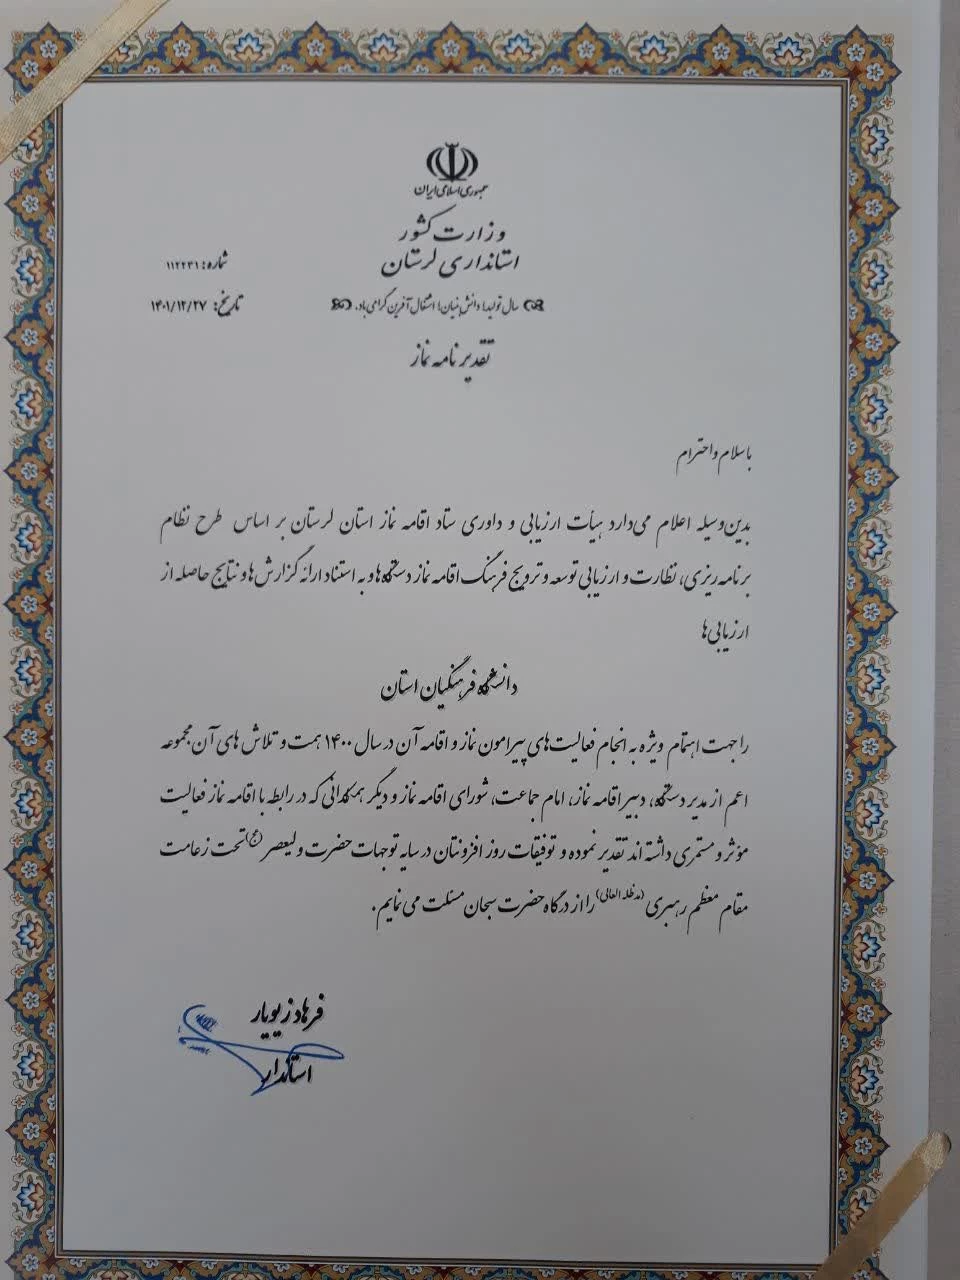 جمهوری اسلامی ایران
وزارت کشور
استانداری لرستان
شماره: ۱۱۲۲۳۱
تاریخ: ۱۴۰۱/۱۲/۲۷
سال تولید؛ دانش‌بنیان، اشتغال آفرین گرامی باد.
تقدیر نامه نماز
با سلام و احترام
بدین‌وسیله اعلام می‌دارد هیأت ارزیابی و داوری ستاد اقامه نماز استان لرستان بر اساس طرح نظام
برنامه ریزی، نظارت و ارزیابی توسعه و ترویج فرهنگ اقامه نماز دستگاه‌ها و به استناد ارائه گزارش‌ها و نتایج حاصله از
ارزیابی‌ها
دانشگاه فرهنگیان استان
را جهت اهتمام ویژه به انجام فعالیت‌های پیرامون نماز و اقامه آن در سال ۱۴۰۰ همت و تلاش های آن مجموعه
اعم از مدیر دستگاه، دبیر اقامه نماز، امام جماعت، شورای اقامه نماز و دیگر همکارانی که در رابطه با اقامه نماز فعالیت
مؤثر و مستمری داشته اند تقدیر نموده و توفیقات روز افزونتان در سایه توجهات حضرت ولیعصر (عج) تحت زعامت
مقام معظم رهبری (مدظله العالی) را از درگاه حضرت سبحان مسئلت می نمایم.
فرهاد زیویار
استاندار